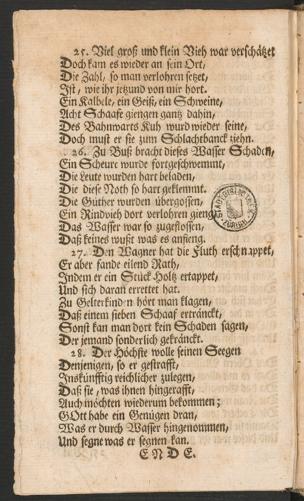 25. Viel groß und klein Vieh war verschätzet
Doch kam es wieder an sein Ort,
Die Zahl, so man verlohren setzet,
Ist, wie ihr jetzund von mir hort.
Ein Kalbele, ein Geiß, ein Schweine,
Acht Schaafe giengen gantz dahin,
Des Bahnwarts Kuh wurd wieder seine,
Doch must er sie zum Schlachtbanck ziehn.
26. Zu Buß bracht dieses Wasser Schaden,
Ein Scheure wurde fortgeschwemmt,
Die Leute wurden hart beladen,
Die diese Noth so hart geklemmt.
Die Güther wurden übergossen,
Ein Rindvieh dort verlohren gieng
Das Wasser war so zugeflossen,
Daß keines wußt was es anfieng.
27. Den Wagner hat die Fluth erschnappet,
Er aber fande eilend Rath,
Indem er ein Stück Holtz ertappet,
Und sich daran errettet hat.
Zu Gelterkinden hört man klagen,
Daß einem sieben Schaaf ertränckt,
Sonst kan man dort kein Schaden sagen,
Der jemand sonderlich gekränckt.
28. Der Höchste wolle seinen Seegen
Denjenigen, so er gestrafft,
Inskünfftig reichlicher zulegen,
Daß sie, was ihnen hingerafft,
Auch möchten wiederum bekommen;
GOtt habe ein Genügen dran,
Was er durch Wasser hingenommen,
Und segne was er segnen kan.
ENDE.